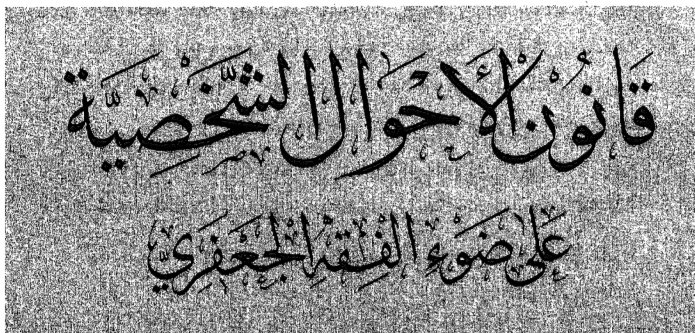 قَانُون الأَحْوَال الشَّخصِيَّة
عَلى ضَوْءِ الفِقهِ الجَعفَريّ